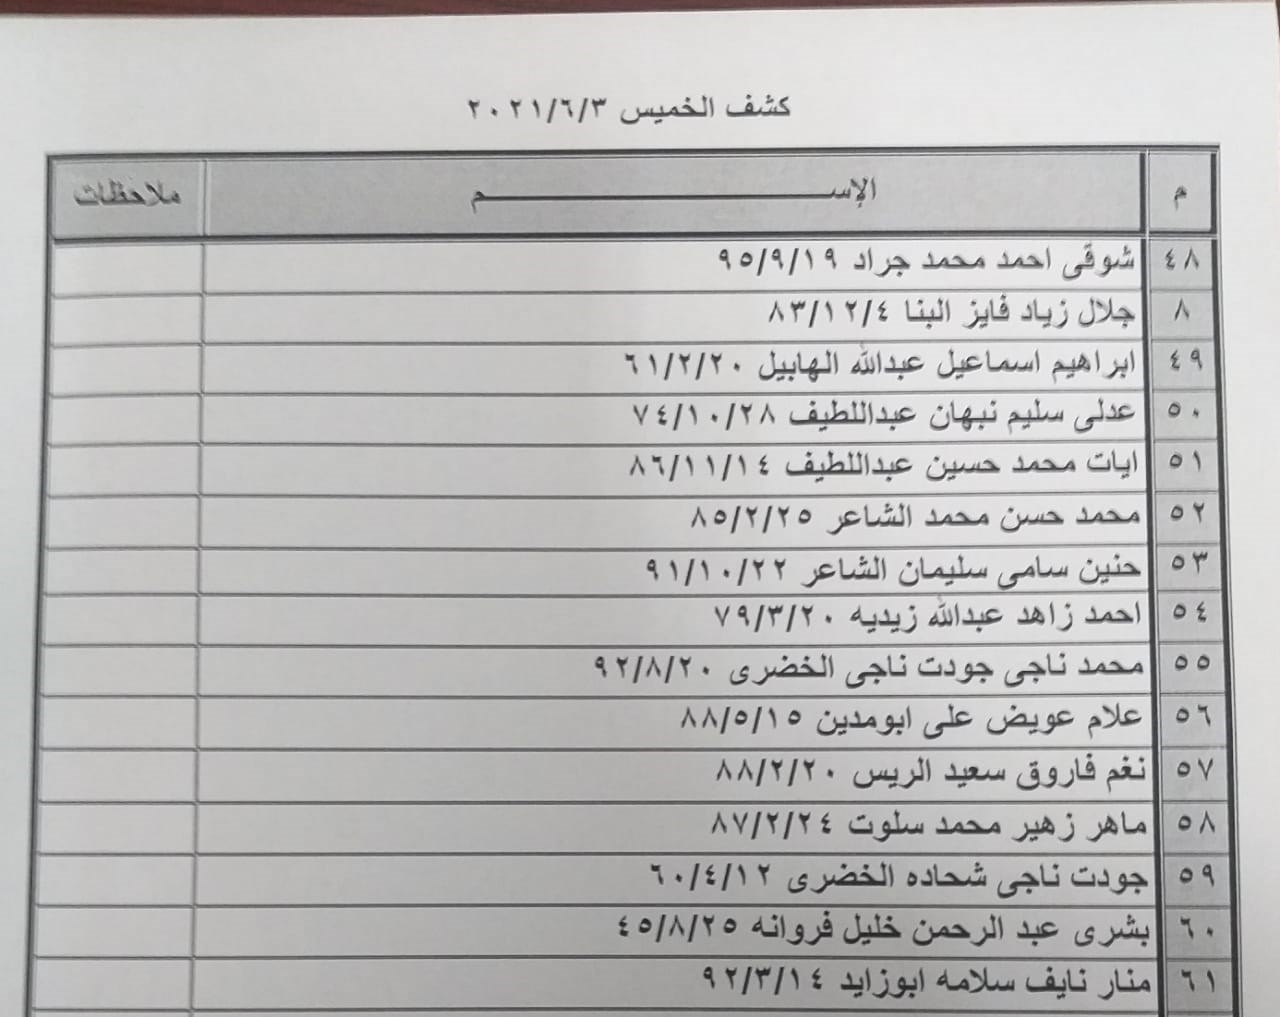 كشف الخميس ٢٠٢١/٦/٣
م الإســـــــــم ملاحظات
٤٨ شوقى احمد محمد جراد ٩٥/٩/١٩
٨ جلال زياد فايز البنا ٨٣/١٢/٤
٤٩ ابراهيم اسماعيل عبدالله الهابيل ٦١/٢/٢٠
٥٠ عدلى سليم نبهان عبداللطيف ٧٤/١٠/٢٨
٥١ ايات محمد حسين عبداللطيف ٨٦/١١/١٤
٥٢ محمد حسن محمد الشاعر ٨٥/٢/٢٥
٥٣ حنين سامى سليمان الشاعر ٩١/١٠/٢٢
٥٤ احمد زاهد عبدالله زيديه ٧٩/٣/٢٠
٥٥ محمد ناجى جودت ناجى الخضرى ٩٢/٨/٢٠
٥٦ علام عويض على ابومدين ٨٨/٥/١٥
٥٧ نغم فاروق سعيد الريس ٨٨/٢/٢٠
٥٨ ماهر زهير محمد سلوت ٨٧/٢/٢٤
٥٩ جودت ناجى شحاده الخضرى ٦٠/٤/١٢
٦٠ بشرى عبد الرحمن خليل فروانه ٤٥/٨/٢٥
٦١ منار نايف سلامه ابوزايد ٩٢/٣/١٤